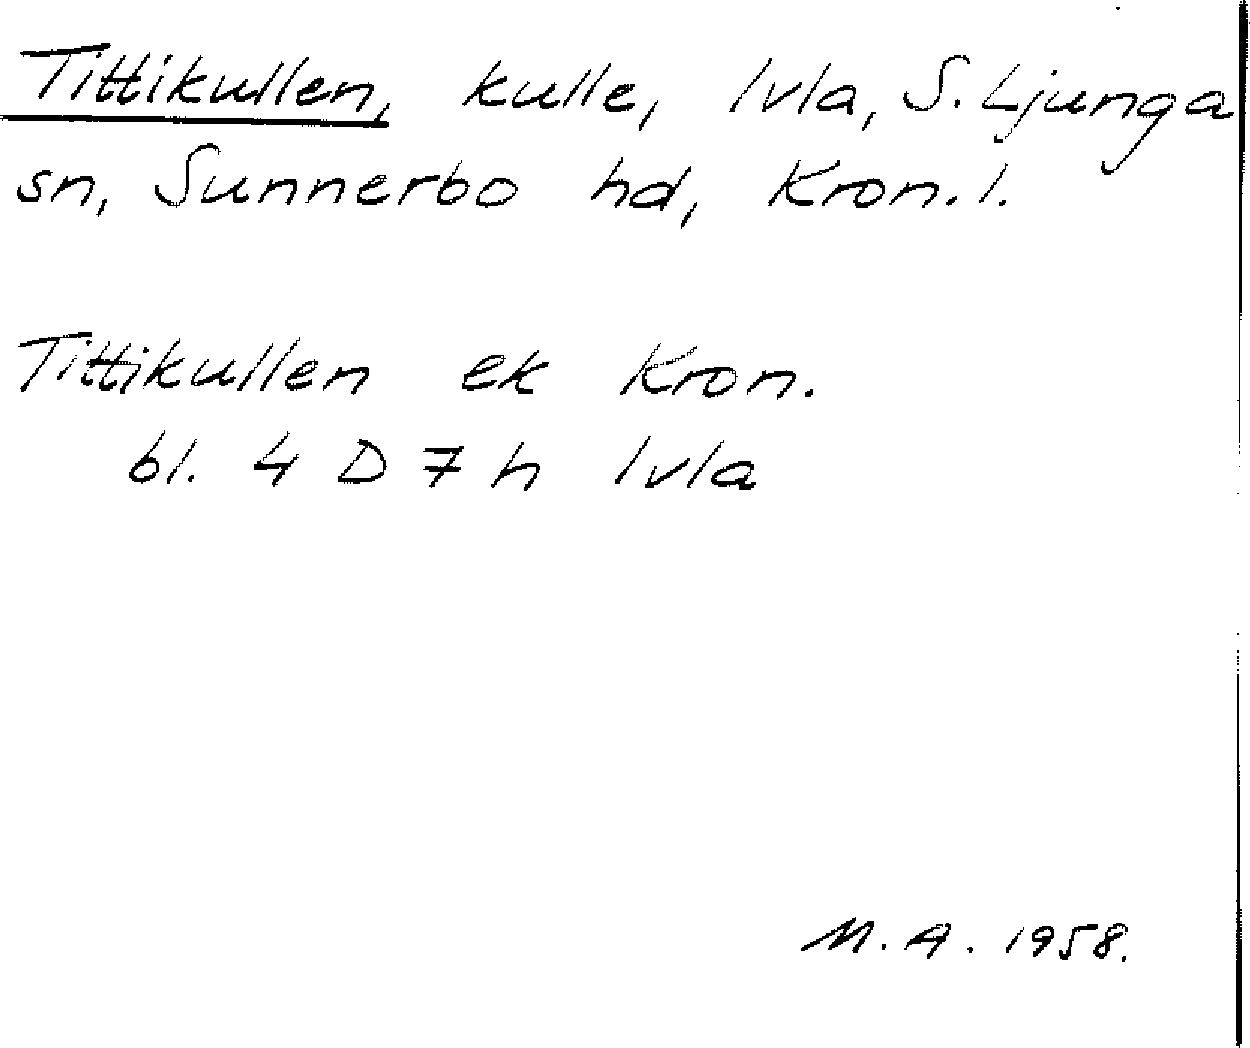 Tittikullen, kulle, Ivla, S. Ljunga
sn, Sunnerbo hd, Kron. l.
Tittikullen ek Kron.
bl. 4 D 7 h Ivla
M. A. 1958.